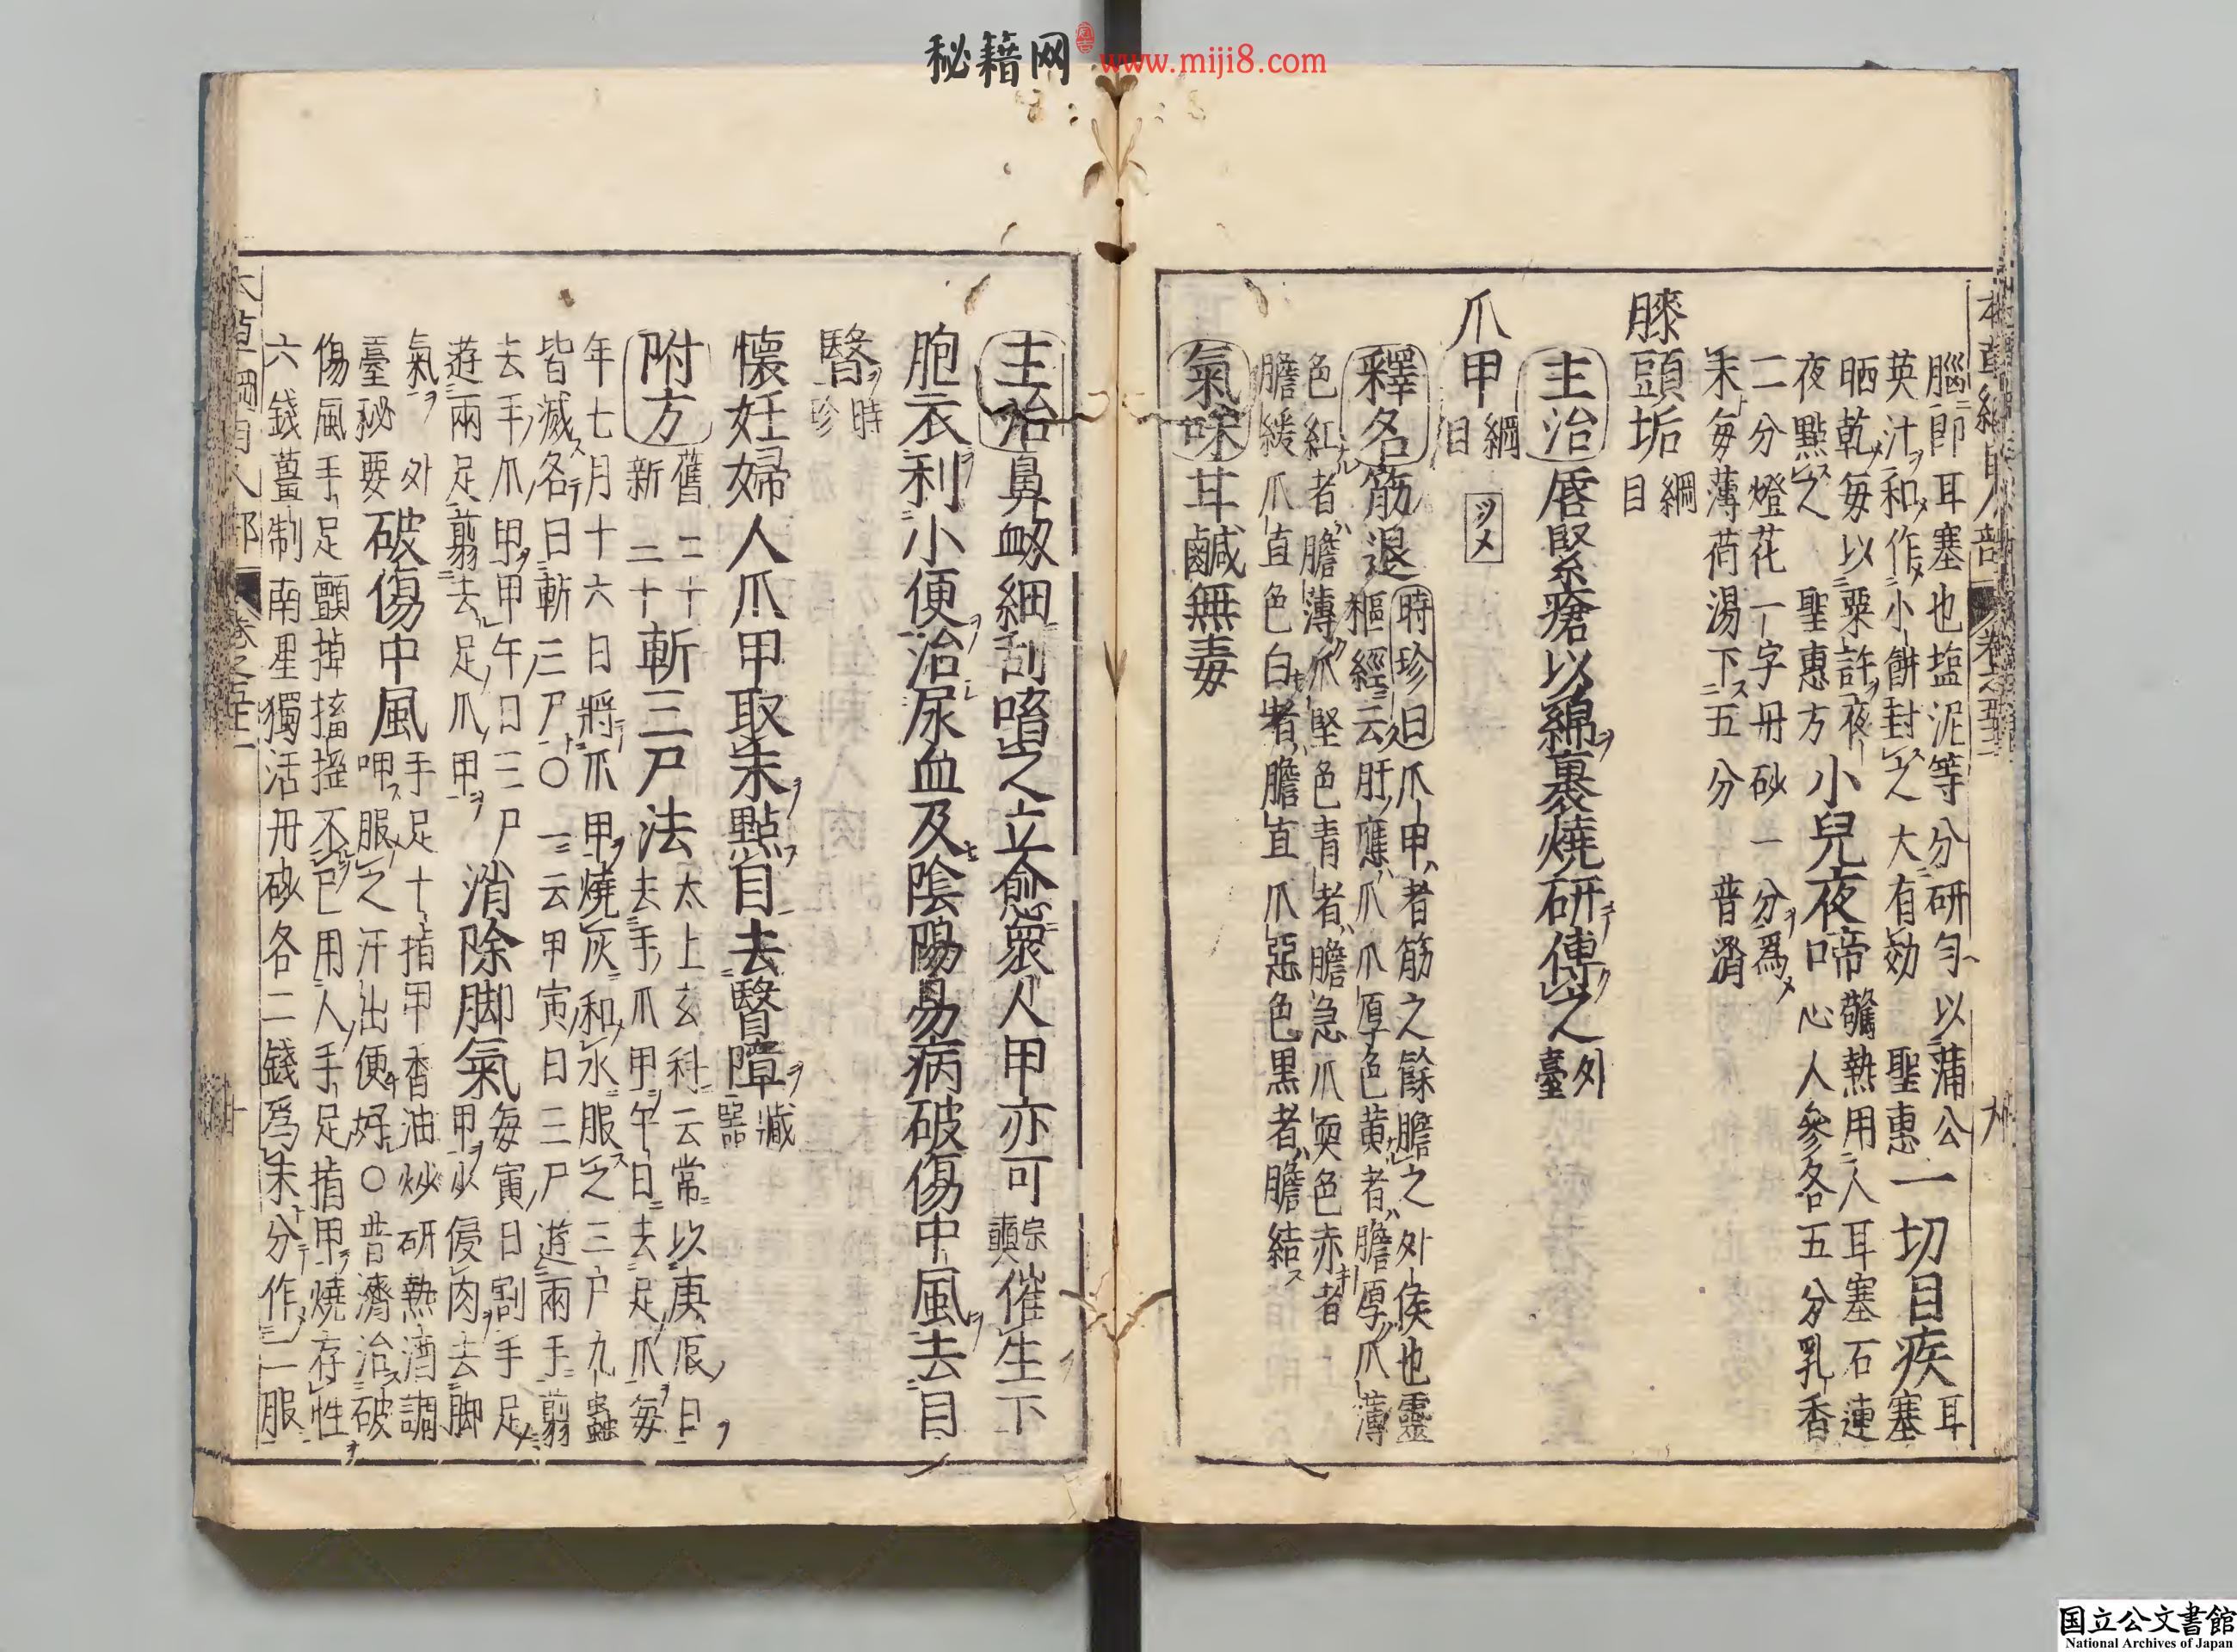 秘籍网 www.miji8.com
本草綱目人部 卷之五十二 九
腦即耳塞也塩泥等分研勻以蒲公
英汁和作小餅封之大有効 聖惠 一切目疾 耳塞
晒乾每以粟許夜
夜點之 聖惠方 小兒夜啼 驚熱用人耳塞石蓮
心人參各五分乳香
二分燈花一字丹砂一分爲
末每薄荷湯下五分 普濟
膝頭垢 綱目
主治 唇緊瘡以綿裹燒研傅之 外臺
爪甲 綱目 ツメ
釋名 筋退 時珍曰爪甲者筋之餘膽之外候也靈
樞經云肝應爪爪厚色黄者膽厚爪薄
色紅者膽薄爪堅色青者膽急爪耎色赤者
膽緩爪直色白者膽直爪惡色黒者膽結
氣味 甘鹹無毒
主治 鼻衂細刮㗜之立愈衆人甲亦可 宗奭 催生下
胞衣利小便治尿血及陰陽易病破傷中風去目
瞖 時珍
懷妊婦人爪甲取末點目去瞖障 藏器
附方 舊二十 新二十 斬三尸法 太上玄科云常以庚辰日
去手爪甲午日去足爪每
年七月十六日將爪甲燒灰和水服之三尸九蟲
皆滅各曰斬三尸〇一云甲寅日三尸遊兩手翦
去手爪甲甲午日三尸
遊兩足翦去足爪甲 消除脚氣 每寅日割手足
甲少侵肉去脚
氣 外
臺秘要 破傷中風 手足十指甲香油炒研熱酒調
呷服之汗出便好〇普濟治破
傷風手足顫掉搐搖不已用人手足指甲燒存性
六錢薑制南星獨活丹砂各二錢爲末分作二服
本草綱目人部 卷之五十二 十
国立公文書館
National Archives of Japan